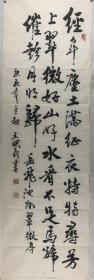 經年塵土滿征衣特特尋芳
上翠微好山好水看不足馬蹄
催趁月明歸 岳飛池州翠微亭
庚辰年